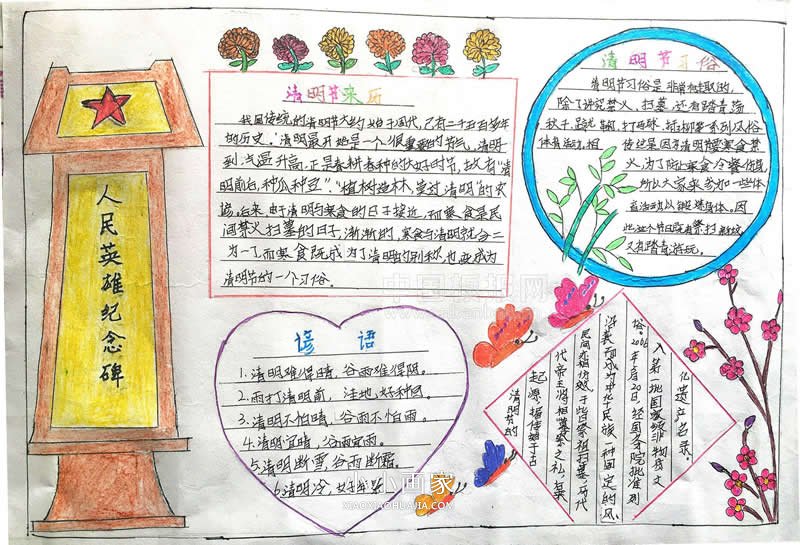 人民英雄纪念碑
清明节来历
我国传统的清明节大约始于周代，已有二千五百多年
的历史。清明最开始是一个很重要的节气，清明一
到，气温升高，正是春耕春种的大好时节，故有“清
明前后，种瓜种豆”。“植树造林，莫过清明”的农
谚。后来，由于清明与寒食的日子接近，而寒食是民
间禁火扫墓的日子，渐渐的，寒食与清明就合二
为一了，而寒食既成为了清明的别称，也变成为
清明节的一个习俗。
清明节习俗
清明节习俗是非常有趣的，
除了讲究禁火、扫墓，还有踏青荡
秋千、蹴鞠、打马球、插柳等系列风俗
体育活动，相传这是因为清明节要寒食禁
火，为了防止寒食冷餐伤身，
所以大家来参加一些体
育活动以锻炼身体。因
此，这个节日既有祭扫
又有踏青游玩。
谚语
1.清明难得晴，谷雨难得阴。
2.雨打清明前，洼地好种田。
3.清明不怕晴，谷雨不怕雨。
4.清明宜晴，谷雨宜雨。
5.清明断雪，谷雨断霜。
6.清明冷，
清明节的
起源，据传始于古
代帝王将相“墓祭”之礼，后来
民间亦相仿效，于此日祭祖扫墓，历代
沿袭而成为中华民族一种固定的风
俗。2006年5月20日，经国务院批准列
入第一批国家级非物质文
化遗产名录。
中国模板网
小小画家
XIAOXIAOHUAJIA.COM